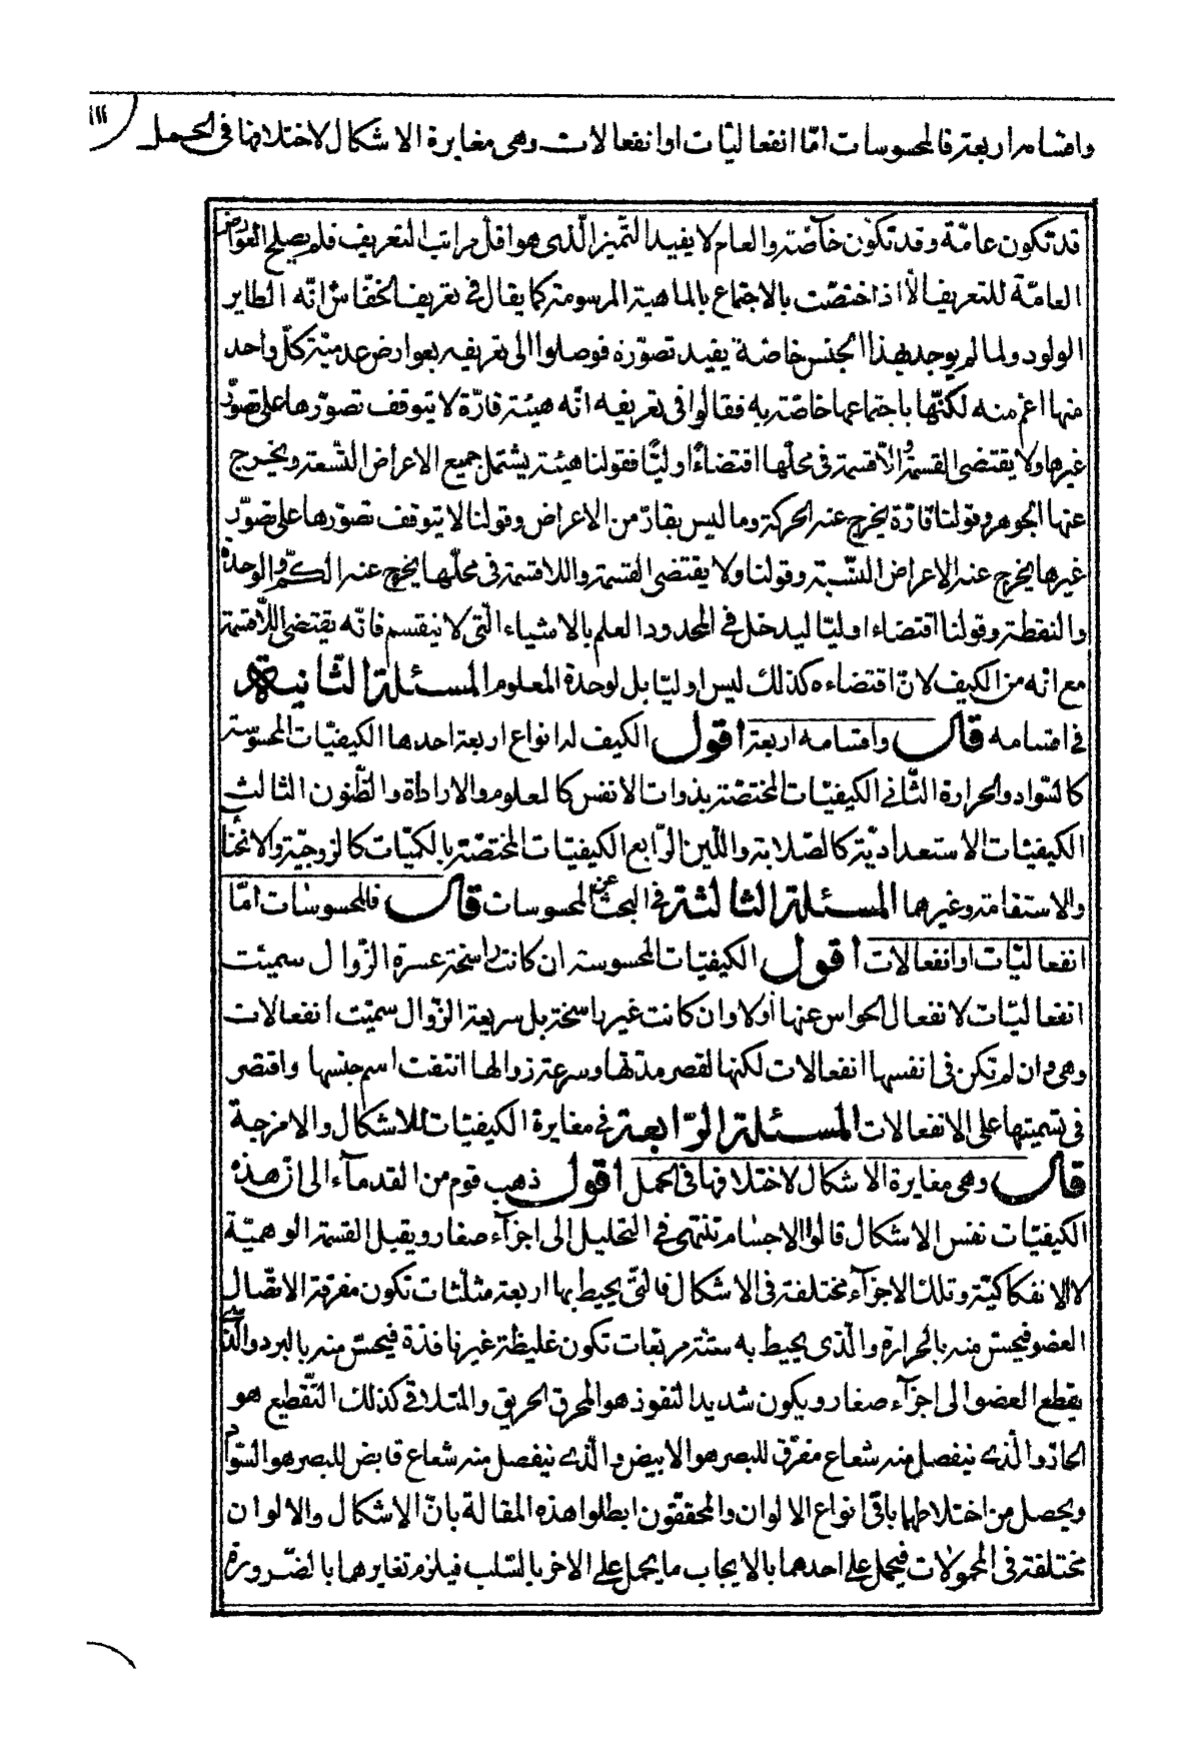 ١١١
واقسامه اربعة فالمحسوسات امّا انفعاليّات او انفعالات وهى مغايرة الاشكال لاختلافها فى الحمل
قد تكون عامّة وقد تكون خاصّة والعام لا يفيد التميز الّذى هو اقلّ مراتب التعريف فلم يصلح العوارض
العامّة للتعريف الّا اذا اختصّت بالاجتماع بالماهية المرسومة كما يقال فى تعريف الخفّاش انّه الطاير
الولود ولما لم يوجد لهذا الجنس خاصّة يفيد تصوّره فوصلوا الى تعريفه بعوارض عدميّة كلّ واحد
منها اعمّ منه لكنّها باجتماعها خاصّة به فقالوا فى تعريفه انّه هيئة قارّة لا يتوقف تصوّرها على تصوّر
غيرها ولا يقتضى القسمة واللّاقسمة فى محلّها اقتضاءً اوليًّا فقولنا هيئة يشتمل جميع الاعراض التّسعة ويخرج
عنها الجوهر وقولنا قارّة يخرج عنه الحركة وما ليس بقارّ من الاعراض وقولنا لا يتوقف تصوّرها على تصوّر
غيرها يخرج عنه الاعراض النّسبيّة وقولنا ولا يقتضى القسمة واللاقسمة فى محلّها يخرج عنه الكمّ والوحدة
والنقطة وقولنا اقتضاء اوليّا ليدخل فى المحدود العلم بالاشياء الّتى لا ينقسم فانّه يقتضى اللّاقسمة
مع انّه من الكيف لانّ اقتضاءه كذلك ليس اوليّا بل لوحدة المعلوم المسئلة الثّانية
فى اقسامه قال واقسامه اربعة اقول الكيف له انواع اربعة احدها الكيفيّات المحسوسة
كالسّواد والحرارة الثّانى الكيفيّات المختصّة بذوات الانفس كالعلوم والارادة والظّنون الثالث
الكيفيّات الاستعداديّة كالصّلابة واللّين الرّابع الكيفيّات المختصّة بالكميّات كالزوجيّة والانحناء
والاستقامة وغيرهما المسئلة الثالثة فى البحث عن المحسوسات قال فالمحسوسات امّا
انفعاليّات او انفعالات اقول الكيفيّات المحسوسة ان كانت راسخة عسرة الزّوال سميّت
انفعاليّات لانفعال الحواس عنها اولا وان كانت غير راسخة بل سريعة الزّوال سميّت انفعالات
وهى وان لم تكن فى انفسها انفعالات لكنها لقصر مدّتها وسرعة زوالها انتفت اسم جنسها واقتصر
فى تسميتها على الانفعالات المسئلة الرّابعة فى مغايرة الكيفيّات للاشكال والامزجة
قال وهى مغايرة الاشكال لاختلافها فى الحمل اقول ذهب قوم من القدمآء الى انّ هذه
الكيفيّات نفس الاشكال قالوا الاجسام تنتهى فى التحليل الى اجزآء صغار ويقبل القسمة الوهميّة
لا الانفكاكيّة وتلك الاجزآء مختلفة فى الاشكال فالتى يحيط بها اربعة مثلّثات تكون مفرقة الاتصال
العضو فيحسّ منه بالحرارة والّذى يحيط به ستّة مربّعات تكون غليظة غير نافذة فيحسّ منه بالبرد والّذى
يقطع العضو الى اجزآء صغار ويكون شديد النفوذ هو المحرق الحريق والمتلاقى كذلك التّقطيع هو
الحلو والّذى ينفصل منه شعاع مفرّق للبصر هو الابيض والّذى ينفصل منه شعاع قابض للبصر هو السّواد
ويحصل من اختلاطهما باقى انواع الالوان والمحققون ابطلوا هذه المقالة بانّ الاشكال والالوان
مختلفة فى المحمولات فيحمل على احدهما بالايجاب ما يحمل على الاخر بالسّلب فيلزم تغايرهما بالضّرورة